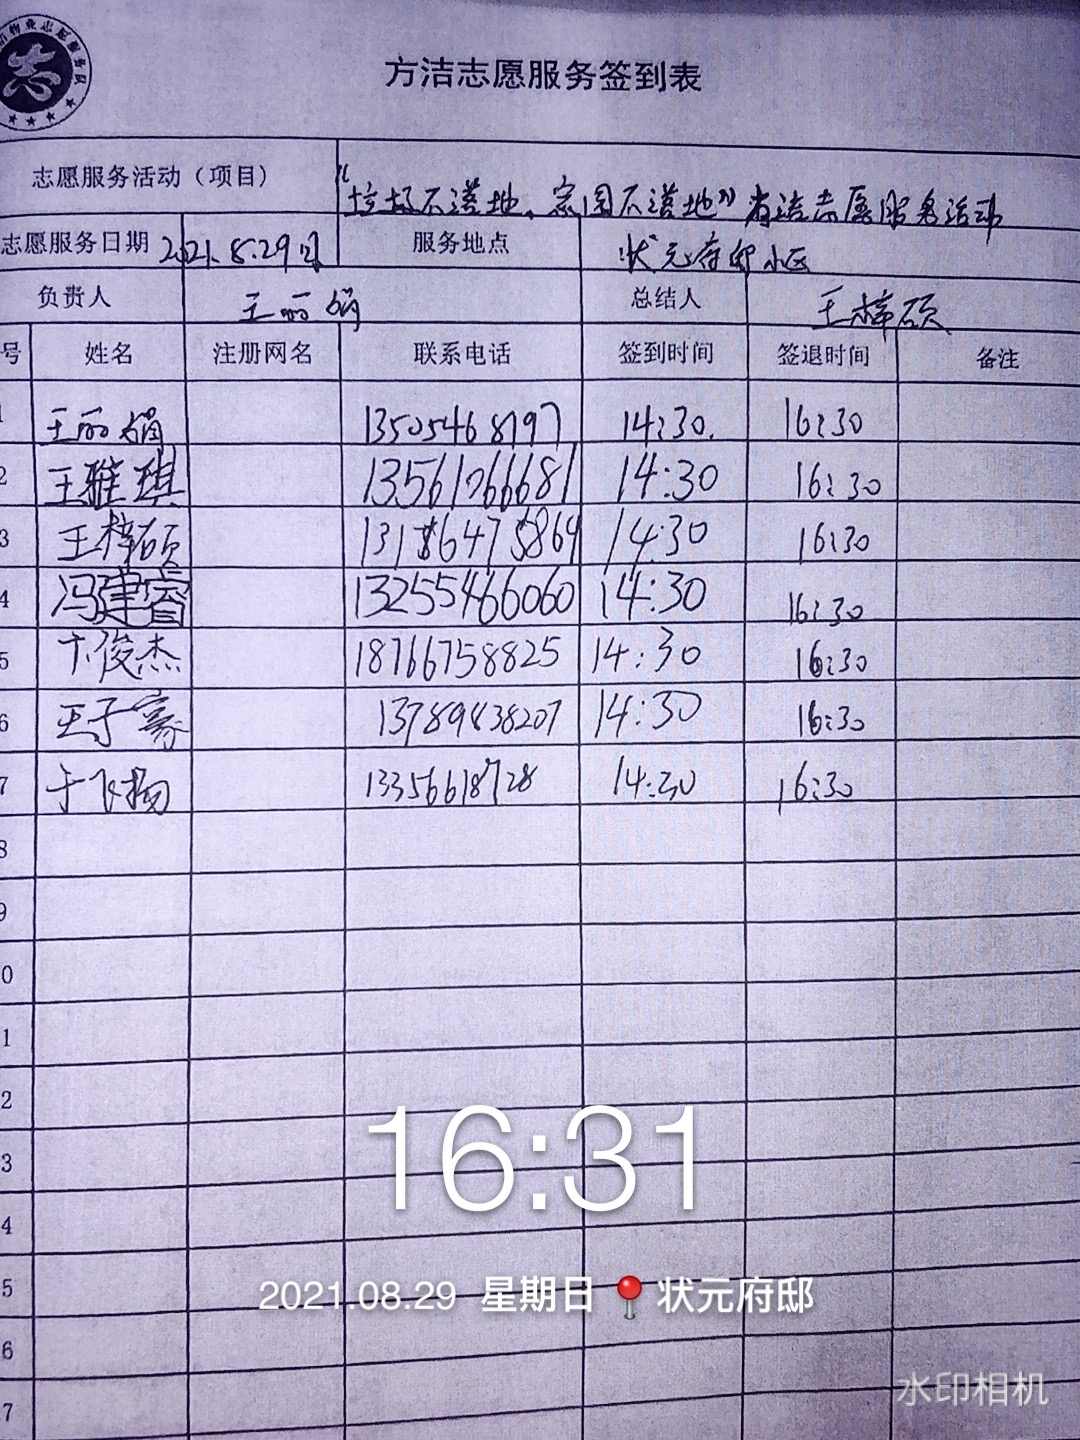 物业志愿服务队
志
方洁志愿服务签到表
志愿服务活动（项目） “垃圾不落地、家园不落地”清洁志愿服务活动
志愿服务日期 2021.8.29日 服务地点 状元府邸小区
负责人 王丽娟 总结人 王梓硕
号 姓名 注册网名 联系电话 签到时间 签退时间 备注
1 王丽娟 13505468797 14:30. 16:30
2 王雅琪 13561066681 14:30 16:30
3 王梓硕 14:30 16:30
4 冯建睿 13255466060 14:30 16:30
5 卞俊杰 18766758825 14:30 16:30
6 王子 13789838207 14:30 16:30
7 于飞扬 13356618728 14:30 16:30
8
9
0
1
2
16:31
3
4
2021.08.29 星期日 状元府邸
5
6
水印相机
7